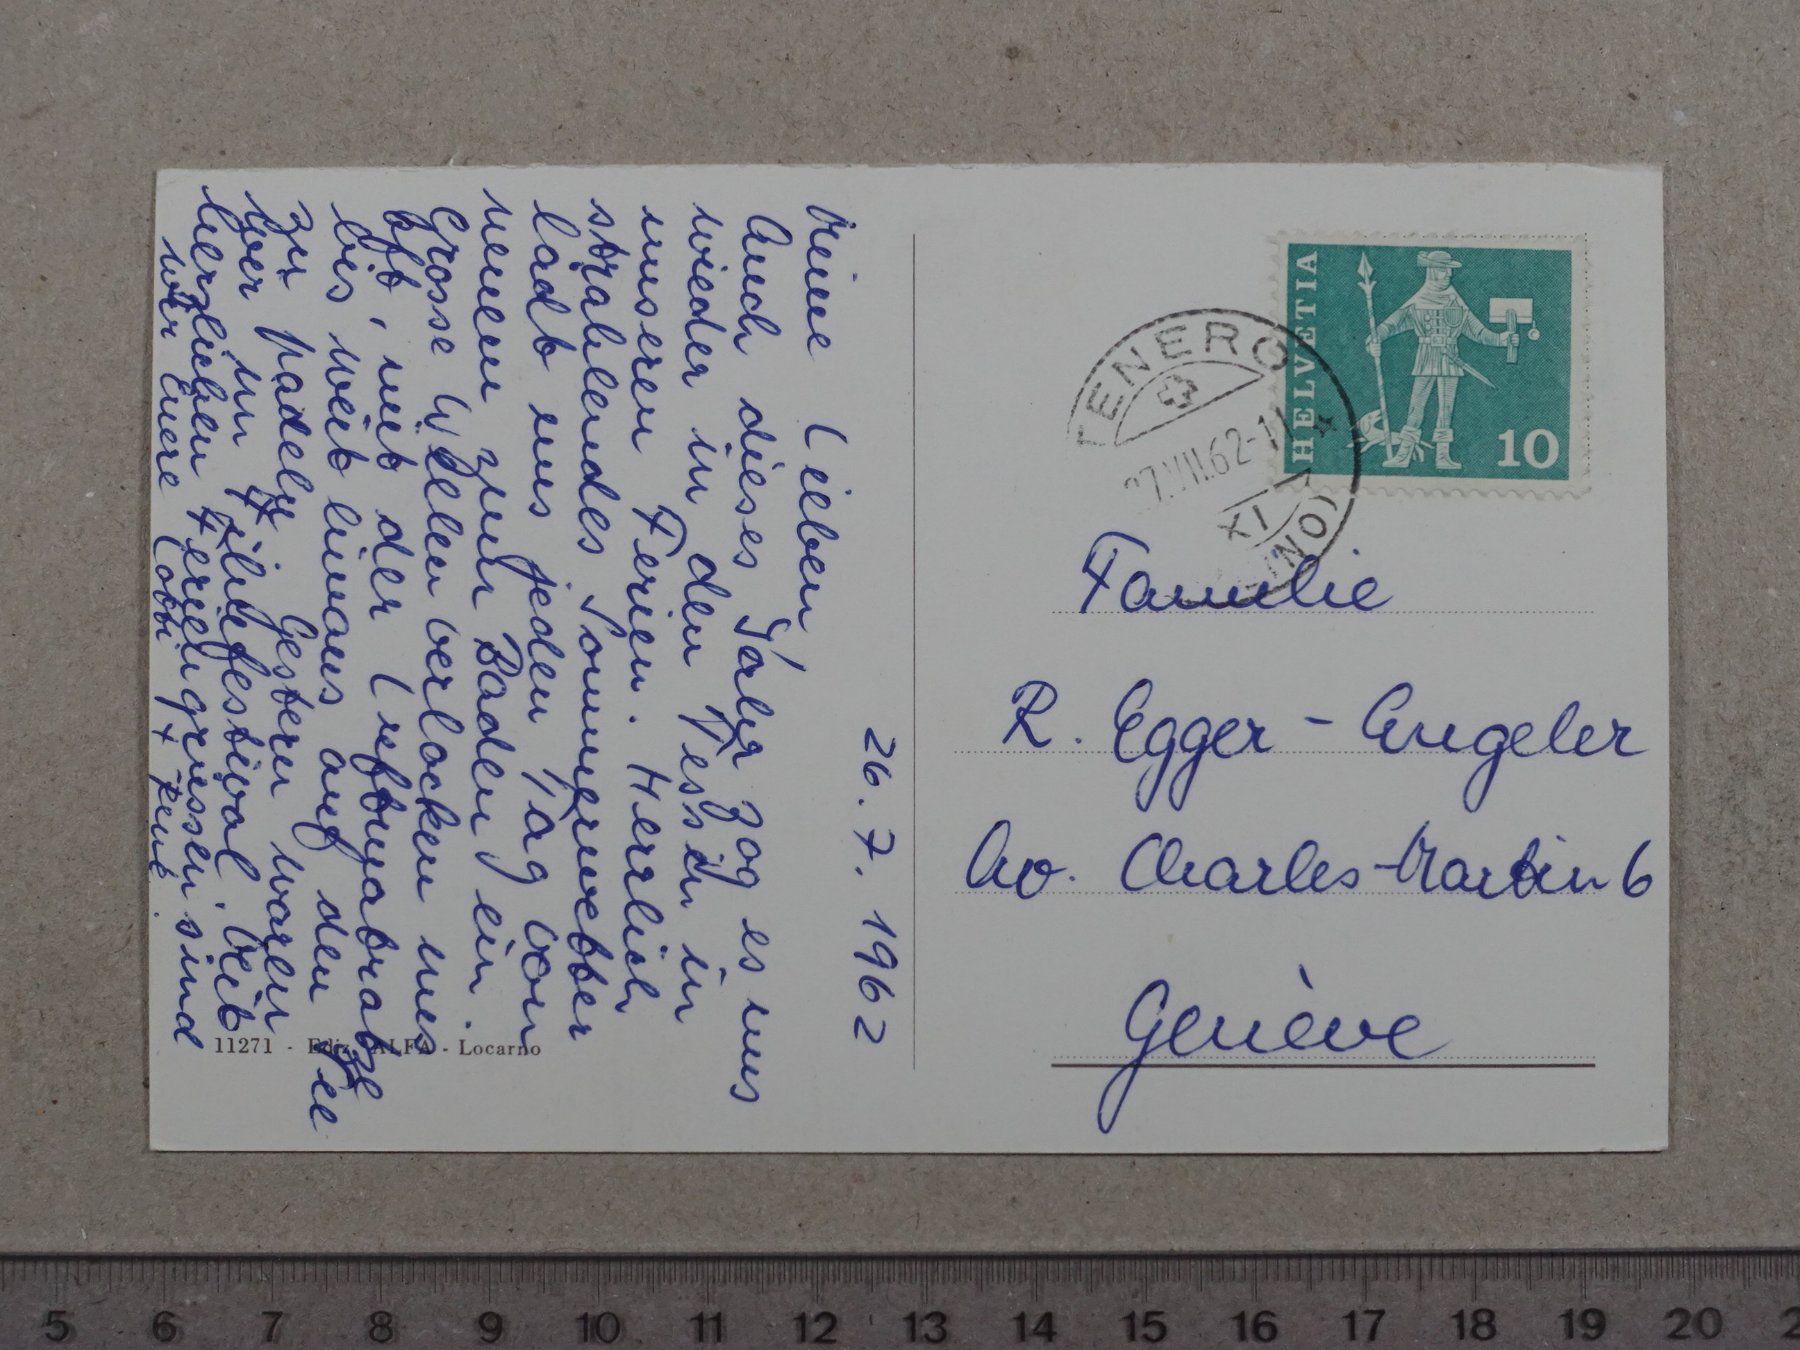 26. 7. 1962
Meine Lieben
Auch dieses Jahr zog es uns
wieder in den Tessin in
unseren Ferien. Herrlich
strahlendes Sommerwetter
ladt uns jeden Tag von
neuem zum Baden ein.
Grosse Wellen verlocken uns
oft, mit der Luftmatratze
bis weit hinaus auf den See
zu padeln. Gestern waren
wir im Filmfestival. Mit
herzlichen Feriengrüssen sind
wir Euere Lotti + René.
11271 - Ediz. ALFA - Locarno
HELVETIA
10
TENERO
27.VII.62-11
XI
(TICINO)
Familie
R. Egger - Angeler
Av. Charles-Martin 6
Genève
5 6 7 8 9 10 11 12 13 14 15 16 17 18 19 20